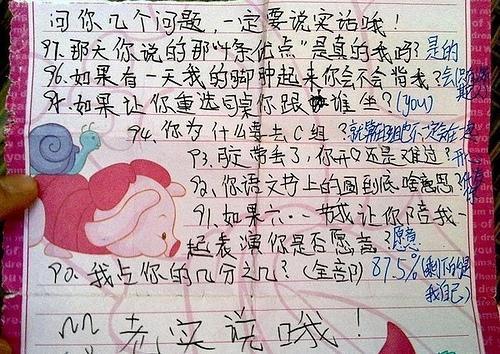 问你几个问题,一定要说实话哦!
97.那天你说的那"十条优点"是真的我吗?是的
96.如果有一天我的脚肿起来你会不会背我?会
95.如果让你重选同桌你跟谁坐?(you)
94.你为什么要去C组?
93.肯定带丢了,你开心还是难过?开
92.你语文书上的圆到底啥意思?
91.如果六·一节我让你陪我一
起表演你是否愿意?愿意
90.我占你的几分之几?(全部) 87.5%(剩下的是
我自己)
老实说哦!